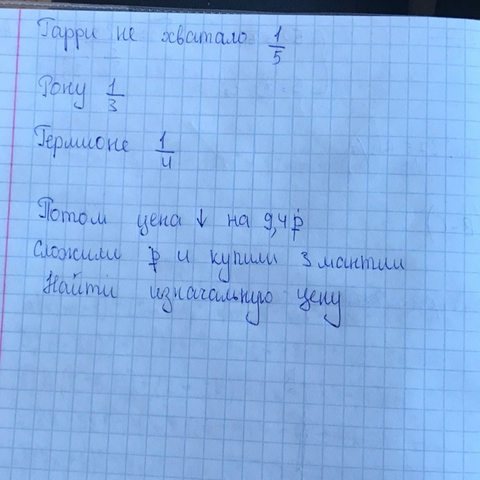 Гарри не хватало 1/5
Рону 1/3
Гермионе 1/4
Потом цена ↓ на 9,4 р
сложили р и купили 3 мантии
Найти изначальную цену